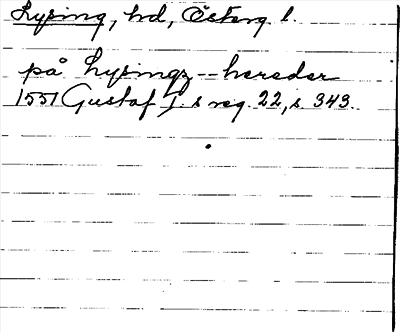 Lysing, hd, Österg. l.
på Lysingz -- hereder
1551 Gustaf I:s reg. 22, s. 343.